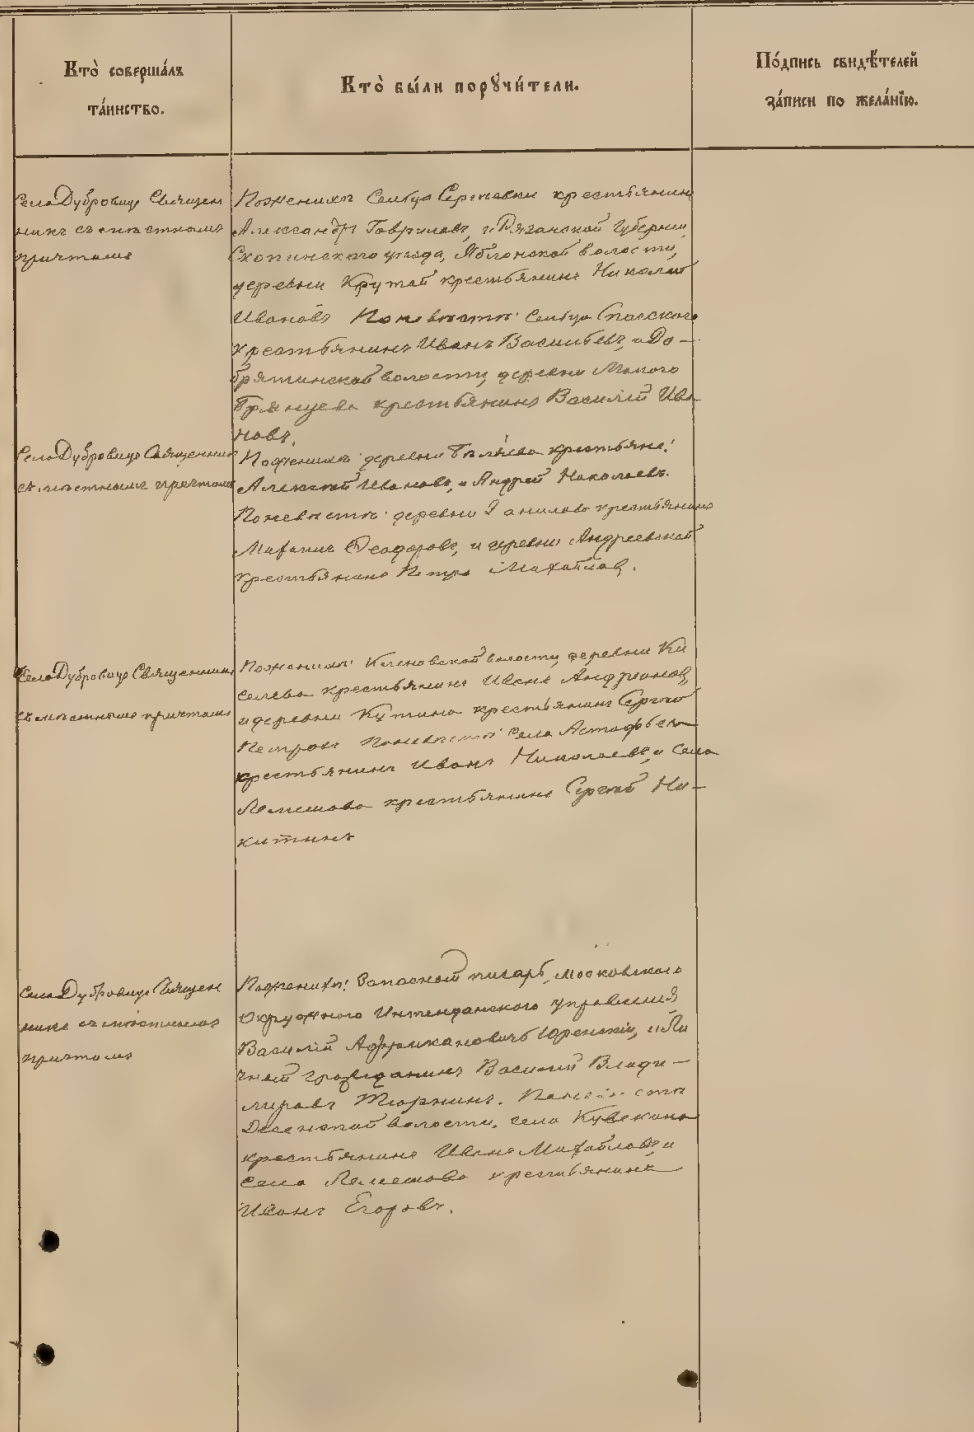 Кто̀ соверша́лъ
та́инство.
Кто̀ бы́ли порꙋчи́тели.
По́дпись свидѣ́телей
за́писи по жела́нїю.
Села Дубровицъ Священ
никъ съ местнымъ
причтомъ
По женихѣ: Сельца крестьянинъ
Александръ Гавриловъ, и Рязанской Губерніи,
Скопинскаго уезда, Яблонской волости,
деревни Крутой крестьянинъ Николай
Ивановъ По невѣсте: Сельца Спасскаго
крестьянинъ Иванъ Васильевъ, и До-
брятинской волости, деревни
крестьянинъ Василій Ива
новъ.
Села Дубровицъ Священникъ
съ местнымъ причтомъ
По женихѣ: деревни Бяляева крестьяне:
Алексей Ивановъ, и Андрей Николаевъ.
По невѣсте: деревни Данилова крестьянинъ
Ѳеодоровъ, и деревни Андреевской
крестьянинъ Петръ Михайловъ.
Села Дубровицъ Священникъ
съ местнымъ причтомъ
По женихѣ: Кленовской волости, деревни Ки
селева крестьянинъ Иванъ Андреановъ,
и деревни Кутина крестьянинъ Сергей
Петровъ По невѣсте: села Астафьева
крестьянинъ Иванъ Николаевъ, и села
Лемешова крестьянинъ Сергей Ни-
китинъ
Села Дубровицъ Священ
никъ съ местнымъ
причтомъ
По женихѣ: Запасной писарь, Московскаго
Окружнаго Интенданскаго управленія
Василій Африкановичъ Юренскій, и Ли
чный гражданинъ Василій Влади-
мировъ Тюринъ. По невѣсте
Десенской волости, села Кувекина
крестьянинъ Иванъ Михайловъ и
села Лемешова крестьянинъ
Иванъ Егоровъ.